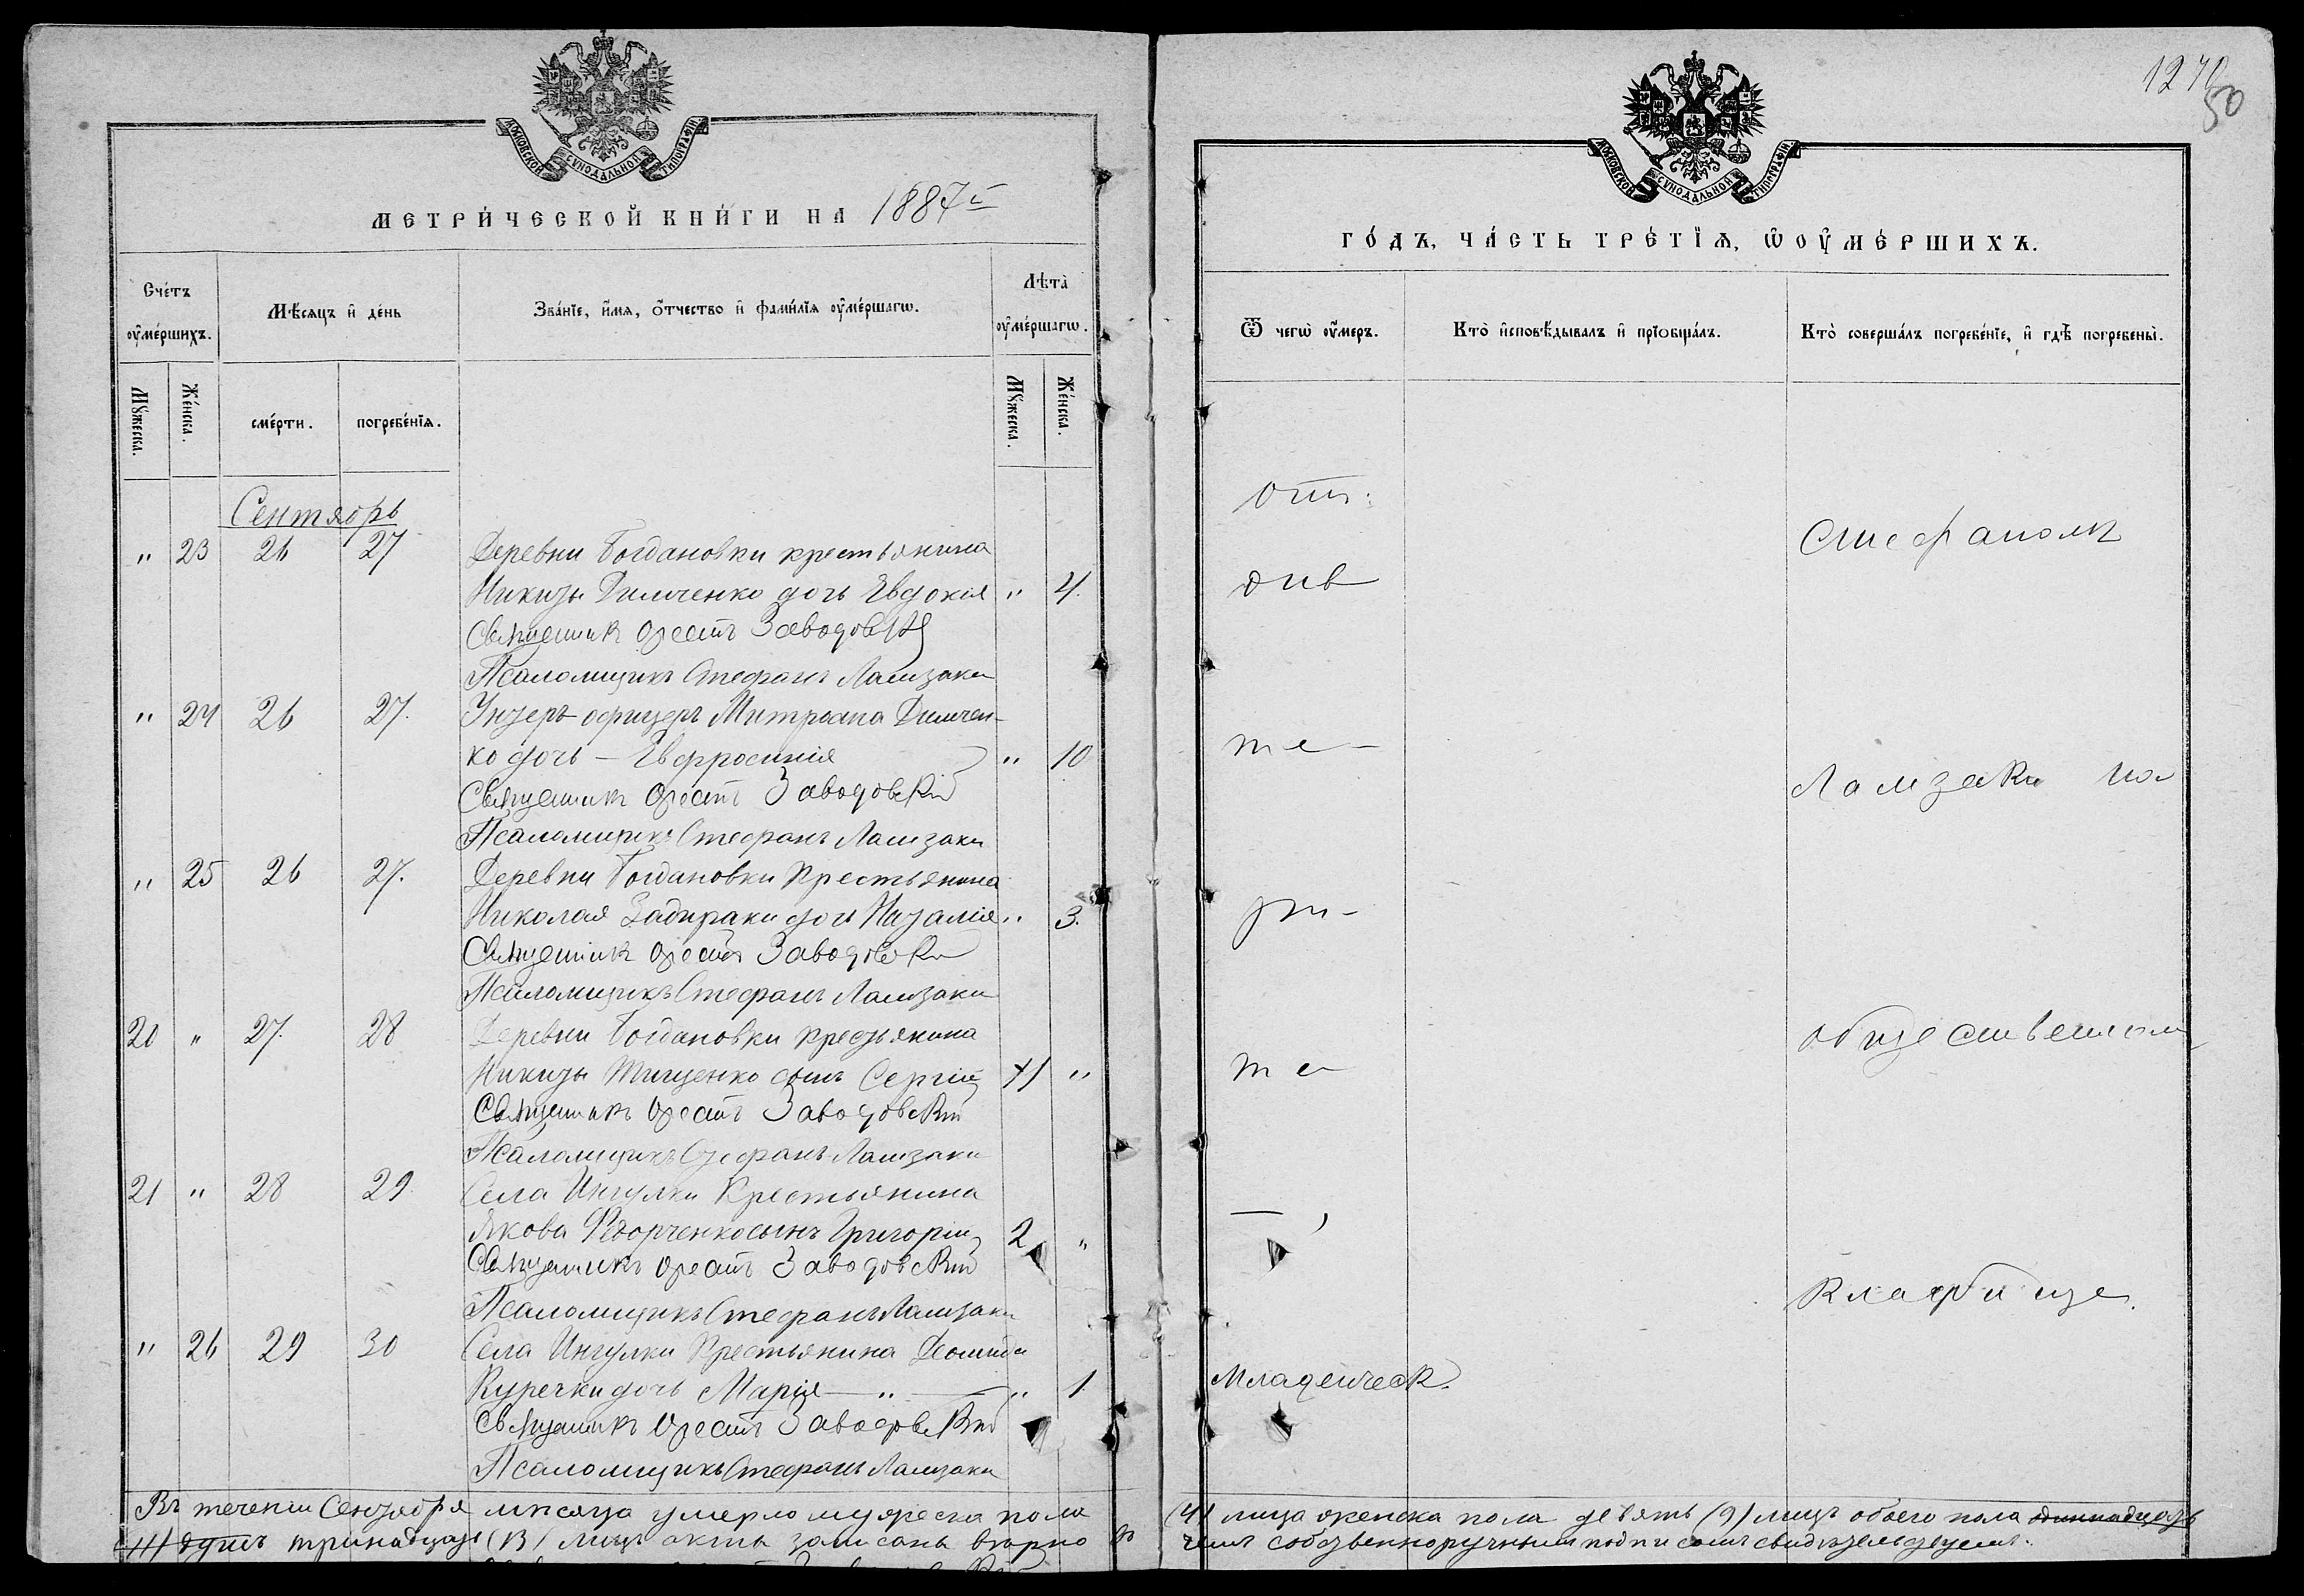 1276
50
МОСКОВСКОЙ СѴНОДАЛЬНОЙ ТИПОГРАФІИ
МЕТРИ́ЧЕСКОЙ КНИ́ГИ НА 1887 г
Сче́тъ оу҆ме́ршихъ.
Мѣ́сяцъ и҆ де́нь
Зва́нїе, и҆́мѧ, о҆́тчество и҆ фами́лїѧ оу҆ме́ршагѡ.
Лѣта̀ оу҆ме́ршагѡ.
Мꙋ́жеска.
Же́нска.
сме́рти.
погребе́нїѧ.
Мꙋ́жеска.
Же́нска.
Сентябрь
" 23 26 27 Деревни Богдановки крестьянина
Никиты Димченко дочь Евдокія " 4.
Священникъ Орестъ Заводовскій
Псаломщикъ Стефанъ Ламзаки
" 24 26 27. Унтеръ-офицера Митрофана Димчен-
ко дочь – Евфросинія " 10
Священникъ Орестъ Заводовскій
Псаломщикъ Стефанъ Ламзаки
" 25 26 27. Деревни Богдановки Крестьянина
Николая Задираки дочь Наталія " 3.
Священникъ Орестъ Заводовскій
Псаломщикъ Стефанъ Ламзаки
20 " 27. 28 Деревни Богдановки крестьянина
Никиты Тищенко сынъ Сергій "
Священникъ Орестъ Заводовскій
Псаломщикъ Стефанъ Ламзаки
21 " 28 29. Села Ингулки Крестьянина
Якова Федорченко сынъ Григорій 2 "
Священникъ Орестъ Заводовскій
Псаломщикъ Стефанъ Ламзаки
" 26 29 30 Села Ингулки Крестьянина Деомида
Куречки дочь Марія — " — " 1
Священникъ Орестъ Заводовскій
Псаломщикъ Стефанъ Ламзаки
Въ теченіи Сентября мѣсяца умерло мужеска пола
(11) душъ тринадцать (13) лицъ акты записаны вѣрно въ
МОСКОВСКОЙ СѴНОДАЛЬНОЙ ТИПОГРАФІИ
ГО́ДЪ, ЧА́СТЬ ТРЕ́ТЇѦ, Ѡ ОУ҆МЕ́РШИХЪ.
Ѿ чегѡ̀ оу҆́меръ.
Кто̀ и҆сповѣ́дывалъ и҆ прїѡбща́лъ.
Кто̀ соверша́лъ погребе́нїе, и҆ гдѣ̀ погребены̀.
отъ
Стефаномъ
диф
те-
Ламзаки на
ри-
общественномъ
те
— ,
кладбище.
Младенческ.
(4) лица женска пола девять (9) лицъ обоего пола одиннадцать
чемъ собственноручнымъ подписомъ свидѣтельствуемъ.